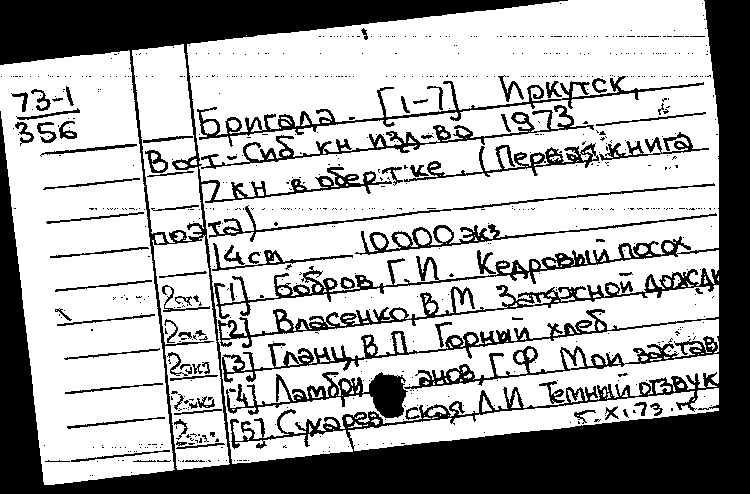 73-1
356
Бригада. [1-7]. Иркутск,
Вост.-Сиб. кн. изд-во, 1973.
7 кн в обертке. (Первая книга
поэта).
14 см. 10000 экз.
2 экз [1]. Бобров, Г.И. Кедровый посох
2 экз [2]. Власенко, В.М. Затяжной дождь
2 экз [3] Гланц, В.П. Горный хлеб.
2 экз [4]. Ламбри анов, Г.Ф. Мои застав
2 экз [5]. Сухарев ская, Л.И. Темный отзвук
5.XI.73.